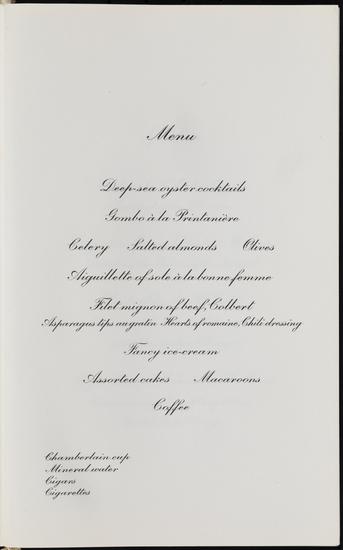 Menu
Deep-sea oyster cocktails
Gombo à la Printanière
Celery Salted almonds Olives
Aiguillette of sole à la bonne femme
Filet mignon of beef, Colbert
Asparagus tips au gratin Hearts of romaine, Chili dressing
Fancy ice-cream
Assorted cakes Macaroons
Coffee
Chamberlain cup
Mineral water
Cigars
Cigarettes